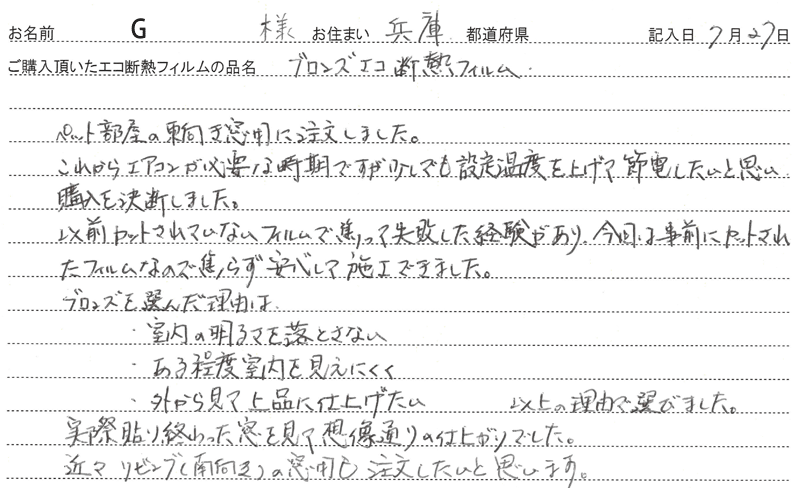 お名前 G 様 お住まい 兵庫 都道府県 記入日 7月27日
ご購入頂いたエコ断熱フィルムの品名 ブロンズエコ断熱フィルム.
ペット部屋の東向き窓用に注文しました。
これからエアコンが必要な時期ですが少しでも設定温度を上げて節電したいと思い
購入を決断しました。
以前カットされていないフィルムで焦って失敗した経験があり、今回は事前にカットされ
たフィルムなので焦らず安心して施工できました。
ブロンズを選んだ理由は
・室内の明るさを落とさない
・ある程度室内を見えにくく
・外から見て上品に仕上げたい 以上の理由で選びました。
実際貼り終わった窓を見て想像通りの仕上がりでした。
近々リビング(南向き)の窓用も注文したいと思います。